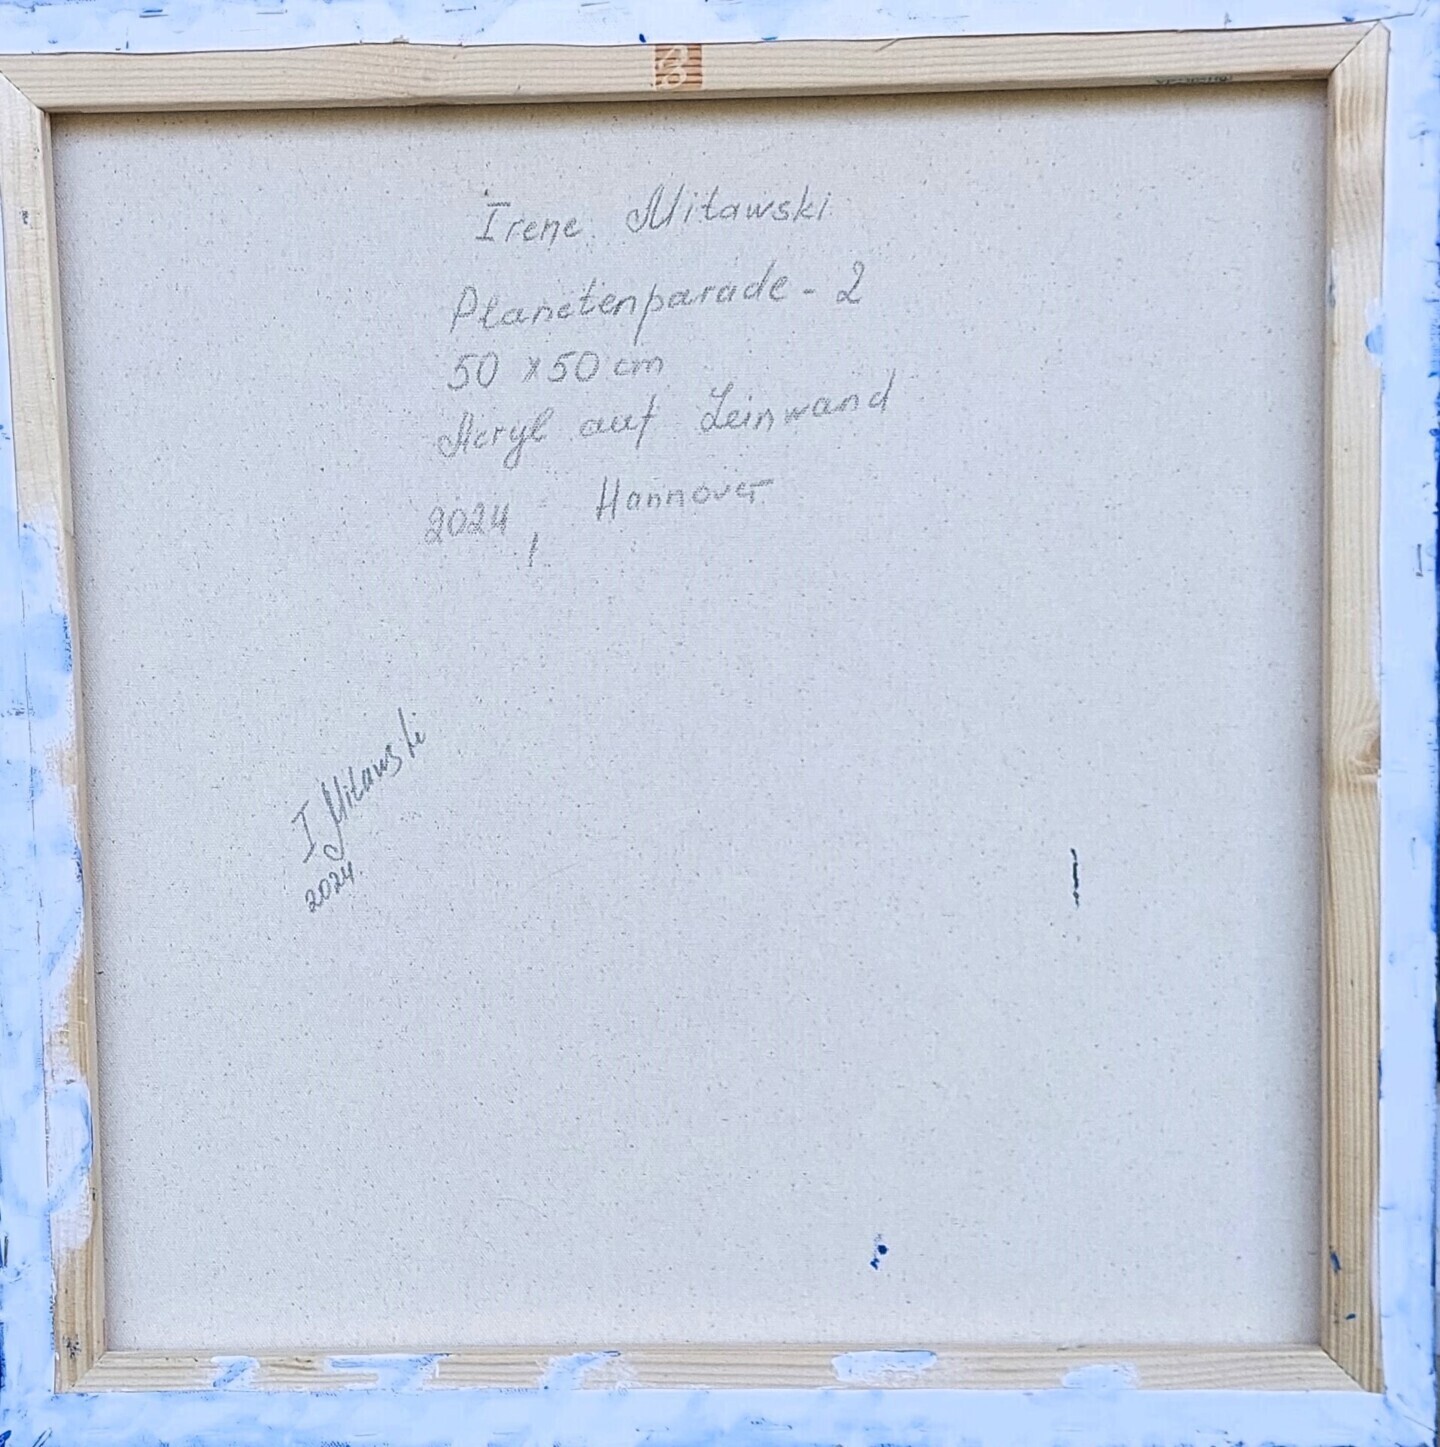 Irene Mitawski
Planetenparade - 2
50 x 50 cm
Acryl auf Leinwand
2024, Hannover
I Mitawski
2024